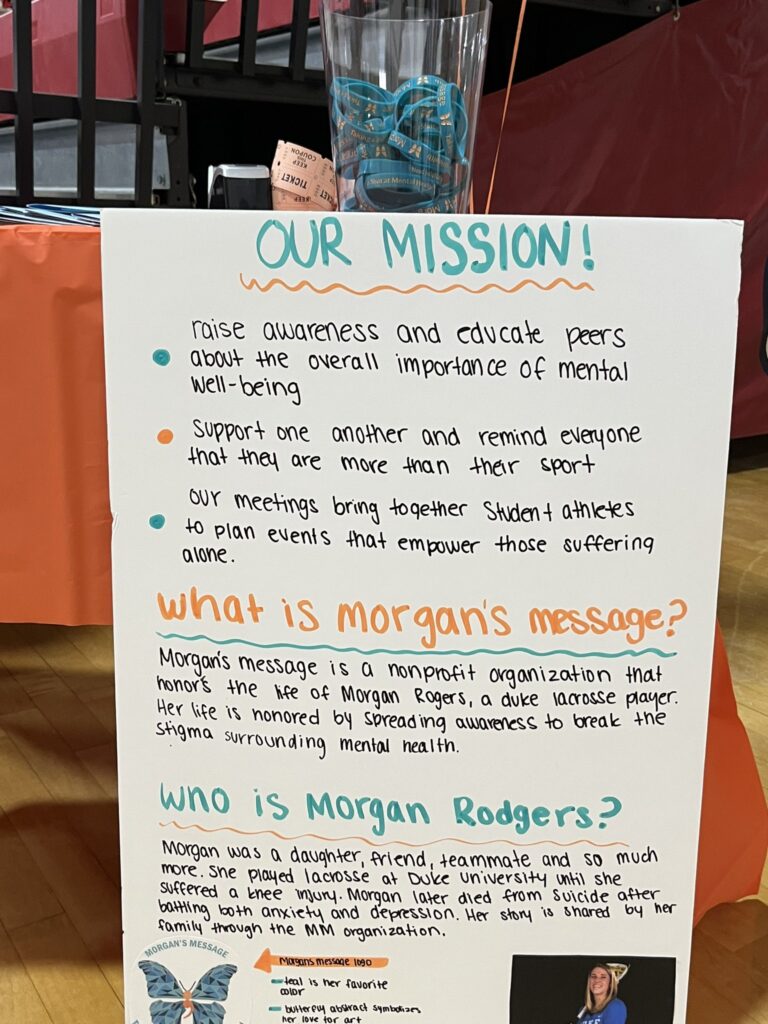 KEEP THIS COUPON
TICKET
OUR MISSION!
raise awareness and educate peers
about the overall importance of mental
well-being
Support one another and remind everyone
that they are more than their sport
our meetings bring together Student athletes
to plan events that empower those suffering
alone.
What is morgan's message?
Morgan's message is a nonprofit organization that
honor's the life of Morgan Rogers, a duke lacrosse player.
Her life is honored by spreading awareness to break the
Stigma surrounding mental health.
Who is Morgan Rodgers?
Morgan was a daughter, friend, teammate and so much
more. She played lacrosse at Duke University until she
suffered a knee injury. Morgan later died from suicide after
battling both anxiety and depression. Her story is shared by her
family through the MM organization.
MORGAN'S MESSAGE
Morgans message logo
teal is her favorite
color
butterfly abstract symbolizes
her love for art